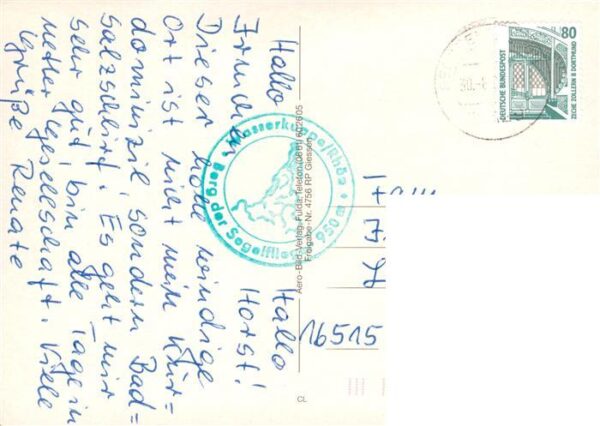 Hallo Hallo
Horst!
Dieser hohe windige
Ort ist nicht mein Kur=
dominizil sondern Bad=
salzschlirf. Es geht mir
sehr gut bin alle Tage in
netter Gesellschaft. Viele
Grüße Renate
Wasserkuppe/Rhön • 950 m •
Berg der Segelflieger
Aero-Bild-Verlag Fulda Telefon (0661) 602605
Freigabe-Nr. 4756 RP Giessen
CL
16515
80
DEUTSCHE BUNDESPOST
ZECHE ZOLLERN II DORTMUND